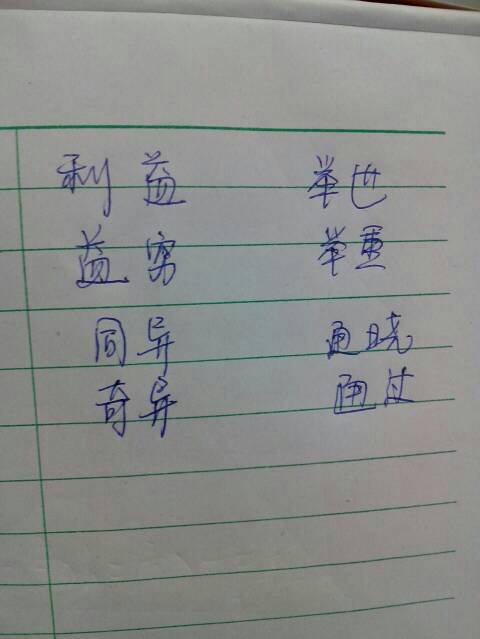 利益 举世
益穷 举重
同异 通晓
奇异 通过